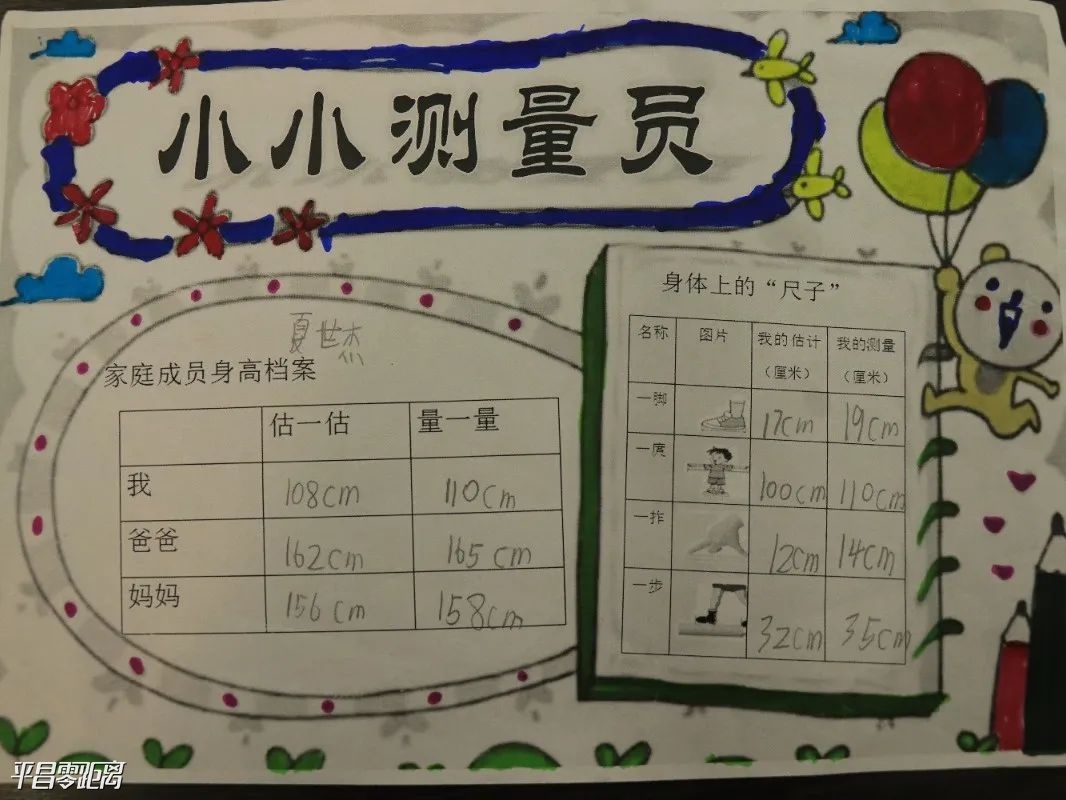 小小测量员
夏世杰
家庭成员身高档案
估一估 量一量
我 108cm 110cm
爸爸 162cm 165cm
妈妈 156cm 158cm
身体上的“尺子”
名称 图片 我的估计（厘米） 我的测量（厘米）
一脚 17cm 19cm
一庹 100cm 110cm
一拃 12cm 14cm
一步 32cm 35cm
平昌零距离